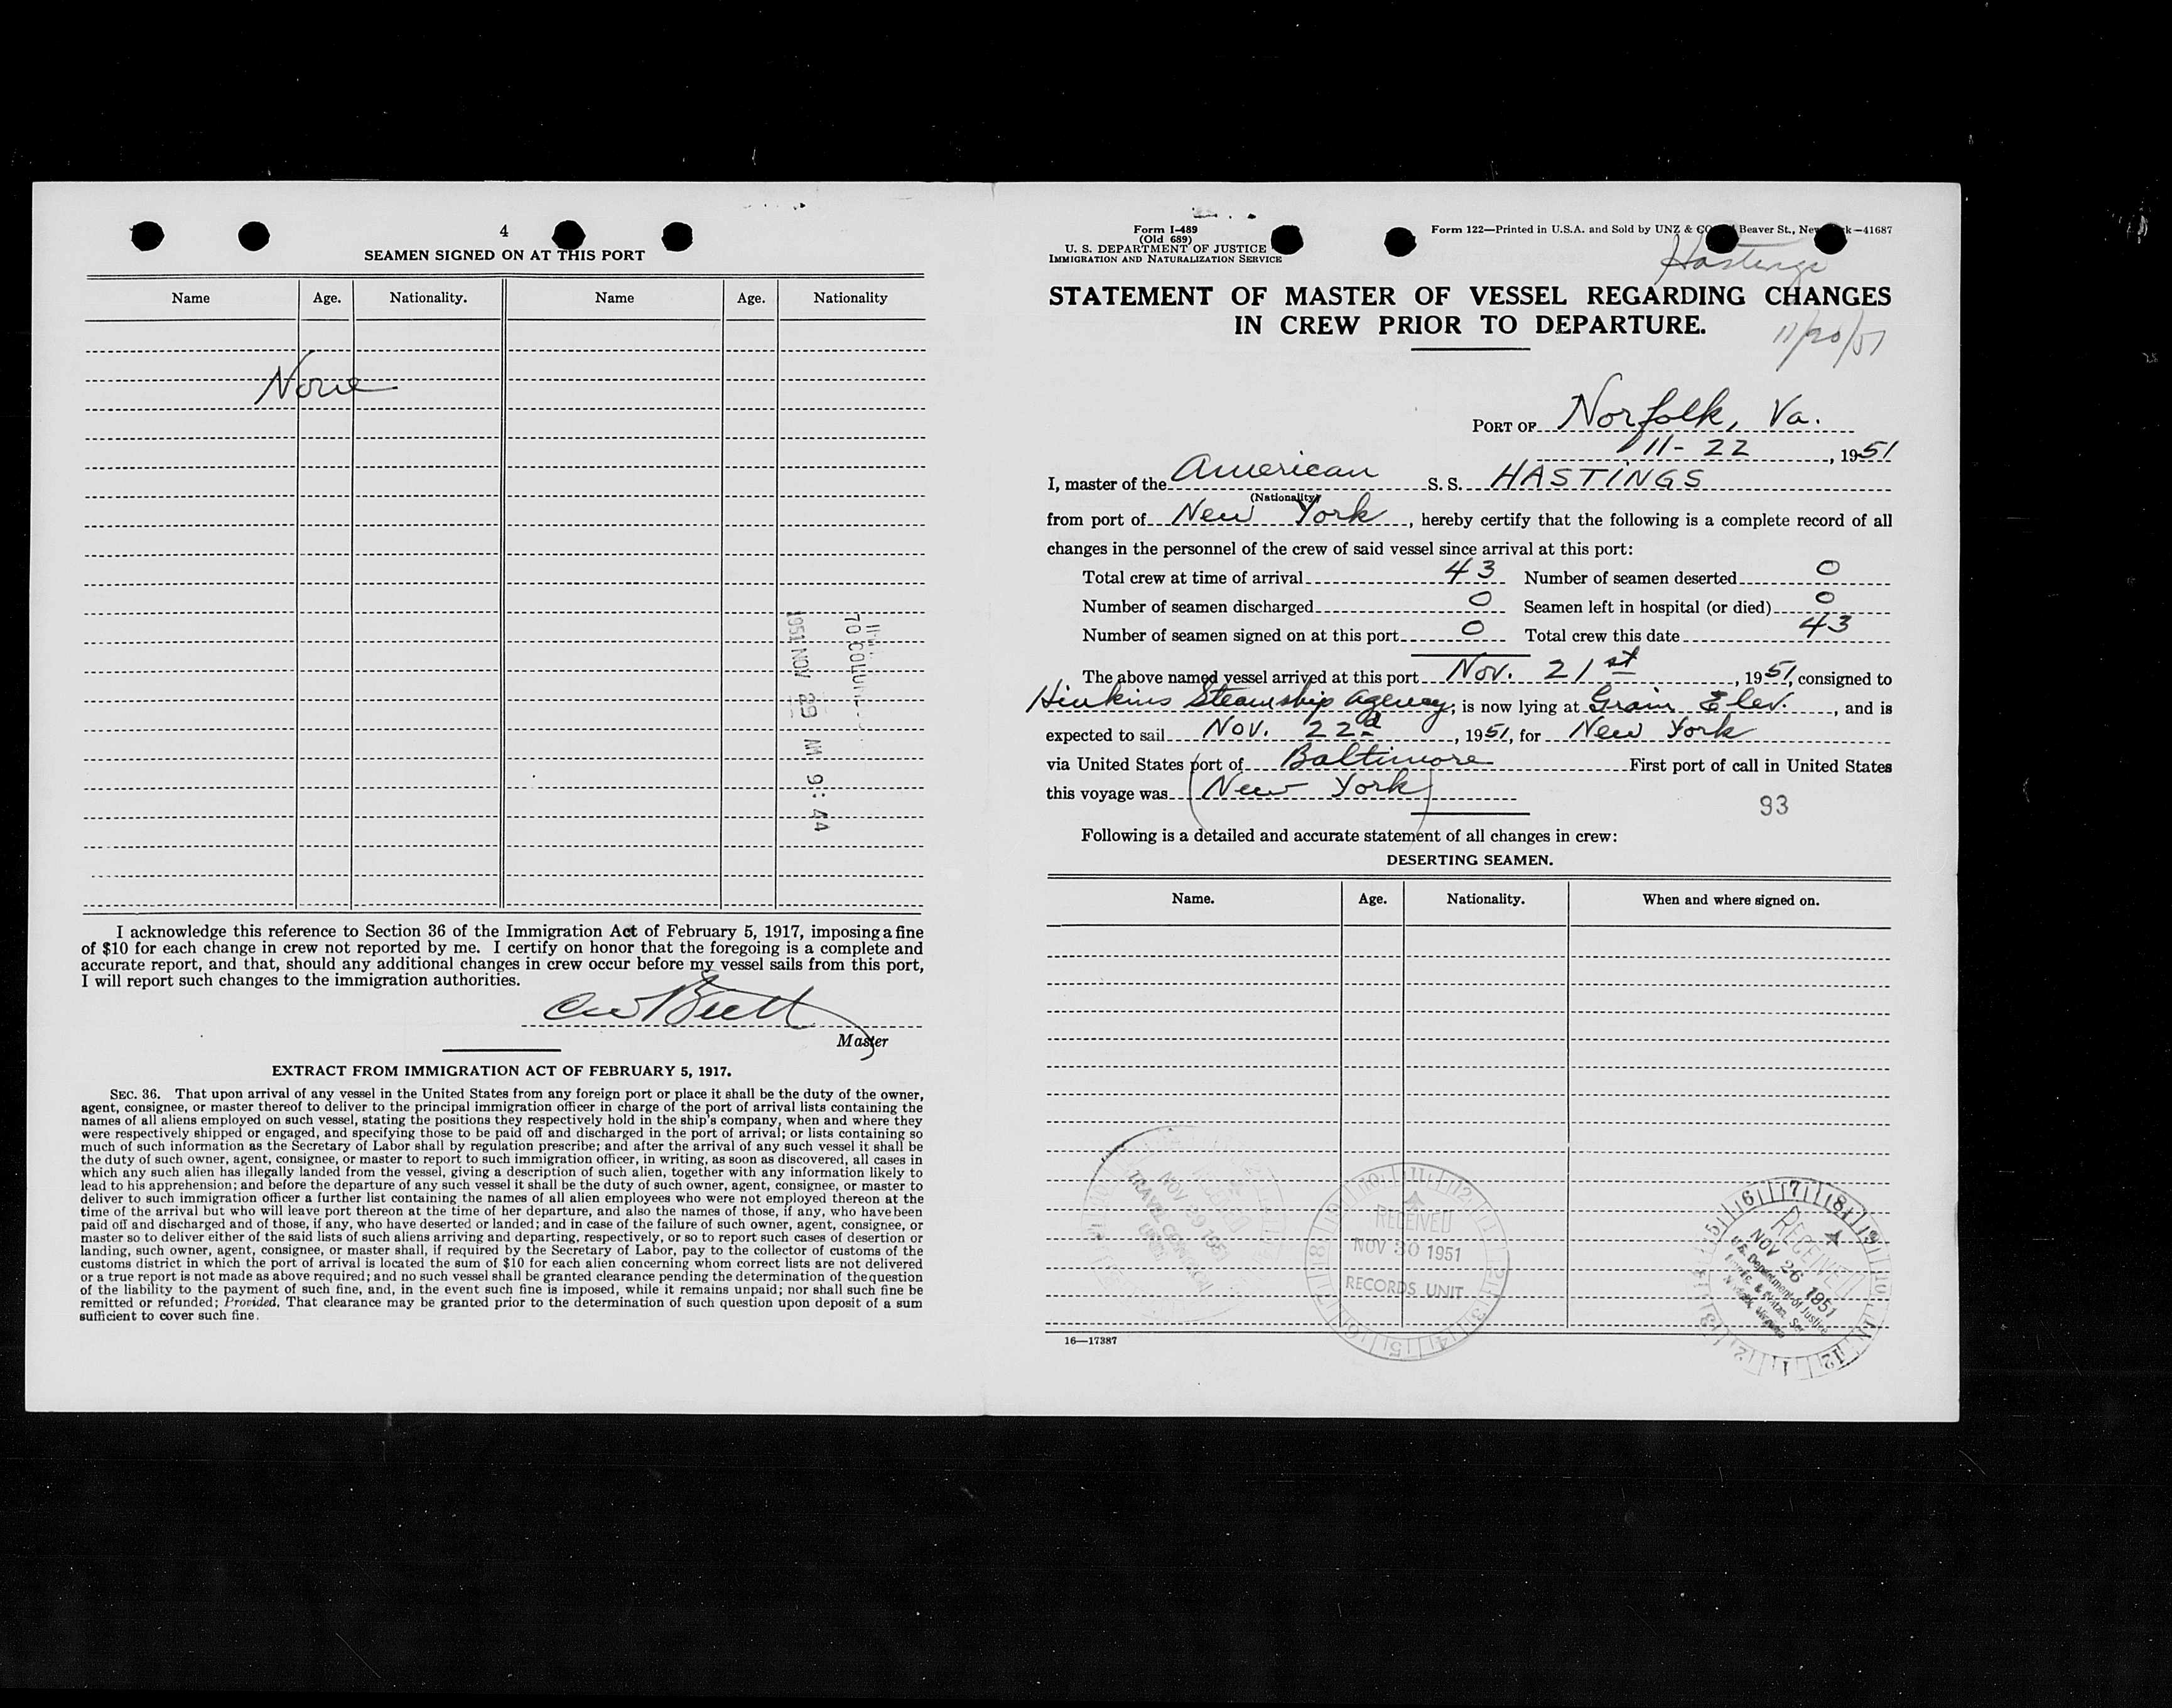 4
SEAMEN SIGNED ON AT THIS PORT
Name Age. Nationality. Name Age. Nationality
None
70 COLUM
1951 NOV 29 AM 9:44
I acknowledge this reference to Section 36 of the Immigration Act of February 5, 1917, imposing a fine
of $10 for each change in crew not reported by me. I certify on honor that the foregoing is a complete and
accurate report, and that, should any additional changes in crew occur before my vessel sails from this port,
I will report such changes to the immigration authorities.
Master
EXTRACT FROM IMMIGRATION ACT OF FEBRUARY 5, 1917.
SEC. 36. That upon arrival of any vessel in the United States from any foreign port or place it shall be the duty of the owner,
agent, consignee, or master thereof to deliver to the principal immigration officer in charge of the port of arrival lists containing the
names of all aliens employed on such vessel, stating the positions they respectively hold in the ship's company, when and where they
were respectively shipped or engaged, and specifying those to be paid off and discharged in the port of arrival; or lists containing so
much of such information as the Secretary of Labor shall by regulation prescribe; and after the arrival of any such vessel it shall be
the duty of such owner, agent, consignee, or master to report to such immigration officer, in writing, as soon as discovered, all cases in
which any such alien has illegally landed from the vessel, giving a description of such alien, together with any information likely to
lead to his apprehension; and before the departure of any such vessel it shall be the duty of such owner, agent, consignee, or master to
deliver to such immigration officer a further list containing the names of all alien employees who were not employed thereon at the
time of the arrival but who will leave port thereon at the time of her departure, and also the names of those, if any, who have been
paid off and discharged and of those, if any, who have deserted or landed; and in case of the failure of such owner, agent, consignee, or
master so to deliver either of the said lists of such aliens arriving and departing, respectively, or so to report such cases of desertion or
landing, such owner, agent, consignee, or master shall, if required by the Secretary of Labor, pay to the collector of customs of the
customs district in which the port of arrival is located the sum of $10 for each alien concerning whom correct lists are not delivered
or a true report is not made as above required; and no such vessel shall be granted clearance pending the determination of the question
of the liability to the payment of such fine, and, in the event such fine is imposed, while it remains unpaid; nor shall such fine be
remitted or refunded; Provided, That clearance may be granted prior to the determination of such question upon deposit of a sum
sufficient to cover such fine.
Form I-489
(Old 689)
U. S. DEPARTMENT OF JUSTICE
IMMIGRATION AND NATURALIZATION SERVICE
Form 122—Printed in U.S.A. and Sold by UNZ & CO Beaver St., New k—41687
Hastings
STATEMENT OF MASTER OF VESSEL REGARDING CHANGES
IN CREW PRIOR TO DEPARTURE.
11/20/51
PORT OF Norfolk, Va.
11-22, 1951
I, master of the American S. S. HASTINGS
(Nationality)
from port of New York, hereby certify that the following is a complete record of all
changes in the personnel of the crew of said vessel since arrival at this port:
Total crew at time of arrival 43 Number of seamen deserted 0
Number of seamen discharged 0 Seamen left in hospital (or died) 0
Number of seamen signed on at this port 0 Total crew this date 43
The above named vessel arrived at this port Nov. 21st, 1951, consigned to
Hinkins Steamship Agency, is now lying at Grain Elev., and is
expected to sail Nov. 22d, 1951, for New York
via United States port of Baltimore First port of call in United States
this voyage was (New York)
93
Following is a detailed and accurate statement of all changes in crew:
DESERTING SEAMEN.
Name. Age. Nationality. When and where signed on.
RECEIVED
NOV 29 1951
TRAVEL CONTROL
RECEIVED
NOV 30 1951
RECORDS UNIT
RECEIVED
NOV 26 1951
U.S. Department of Justice
16—17387